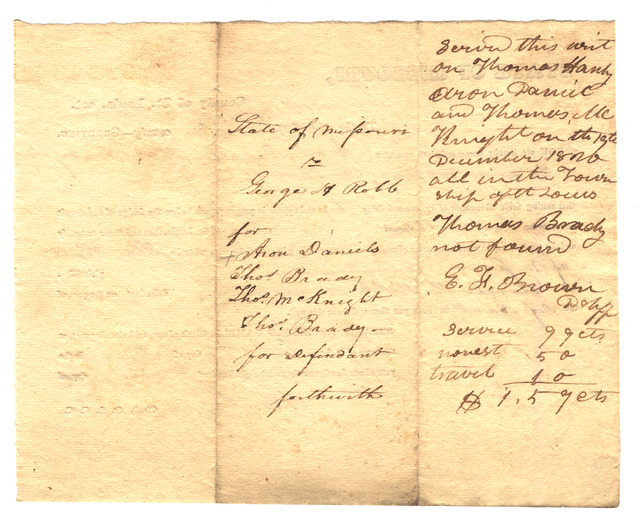 State of Missouri
vs
George A Robb
for
Aron Daniels
Thos. Brady
Thos. McKnight
Thos. Brady
for defendant
forthwith
Served this writ
on Thomas Hanly
Aron Daniel
and Thomas Mc
Knight on the 19th
December 1826
all in the Town
ship of St Louis
Thomas Brady
not found
E. F. Brown
D Shff
Service 99cts
nonest 50
travel 10
$ 1.59cts